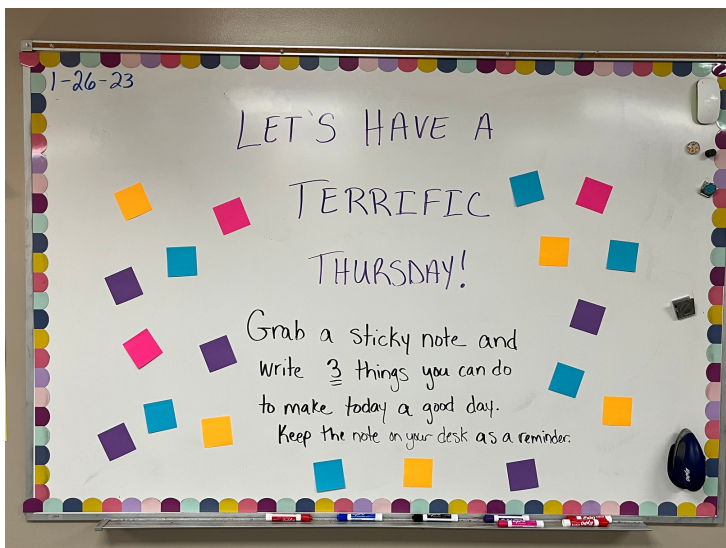 1-26-23
LET'S HAVE A
TERRIFIC
THURSDAY!
Grab a sticky note and
write 3 things you can do
to make today a good day.
Keep the note on your desk as a reminder.